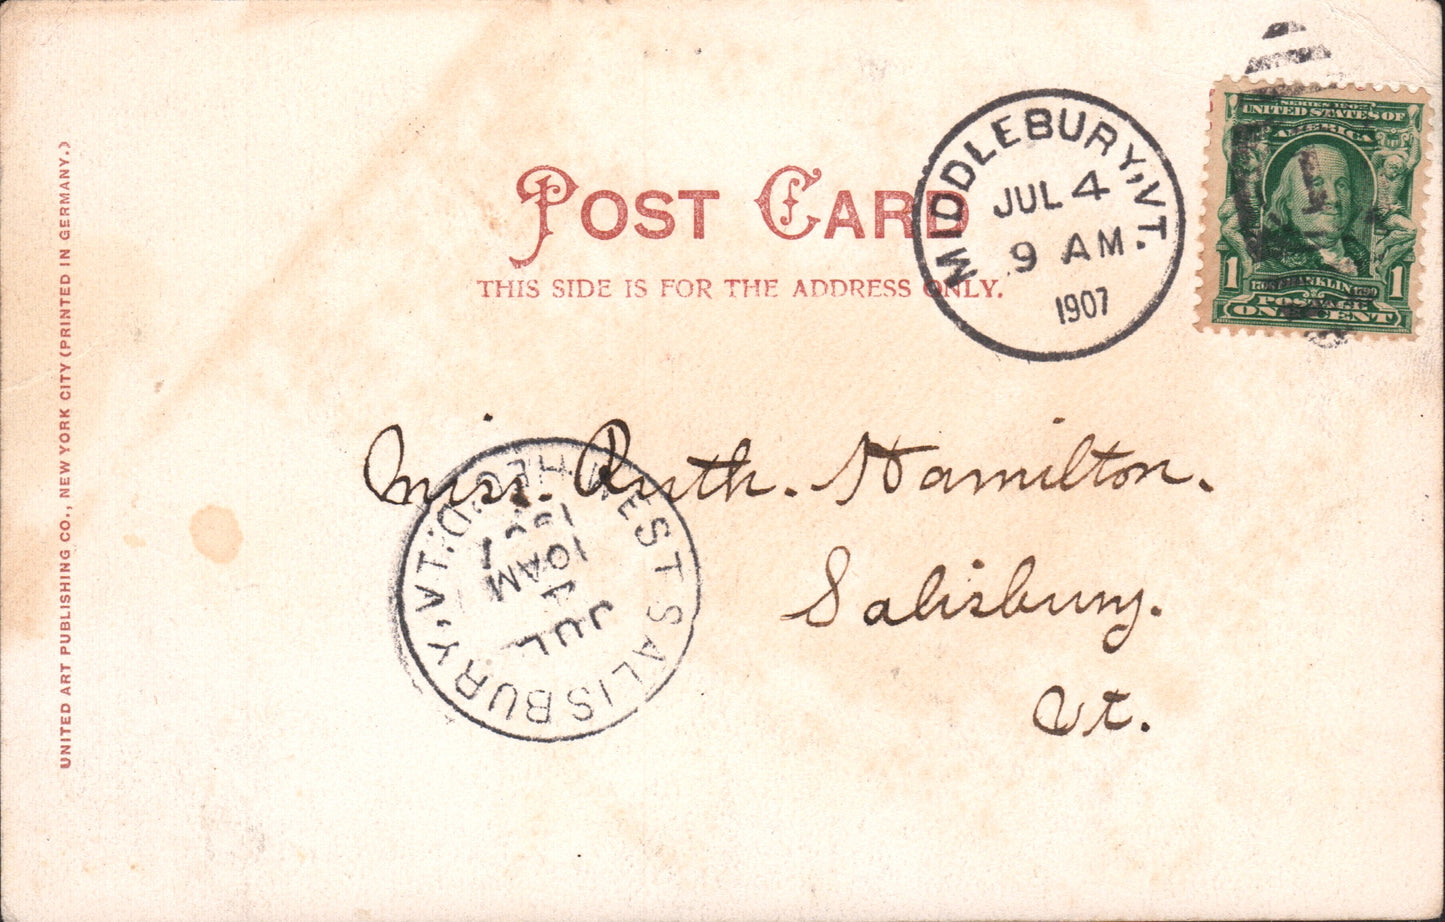 POST CARD
THIS SIDE IS FOR THE ADDRESS ONLY.
MIDDLEBURY, VT.
JUL 4
9 AM.
1907
SERIES 1902
UNITED STATES OF
AMERICA
1 FRANKLIN 1
POSTAGE
ONE CENT
Miss. Ruth. Hamilton.
Salisbury.
Vt.
WEST SALISBURY, VT.
REC'D.
JUL
4
10 AM
1907
UNITED ART PUBLISHING CO., NEW YORK CITY (PRINTED IN GERMANY.)